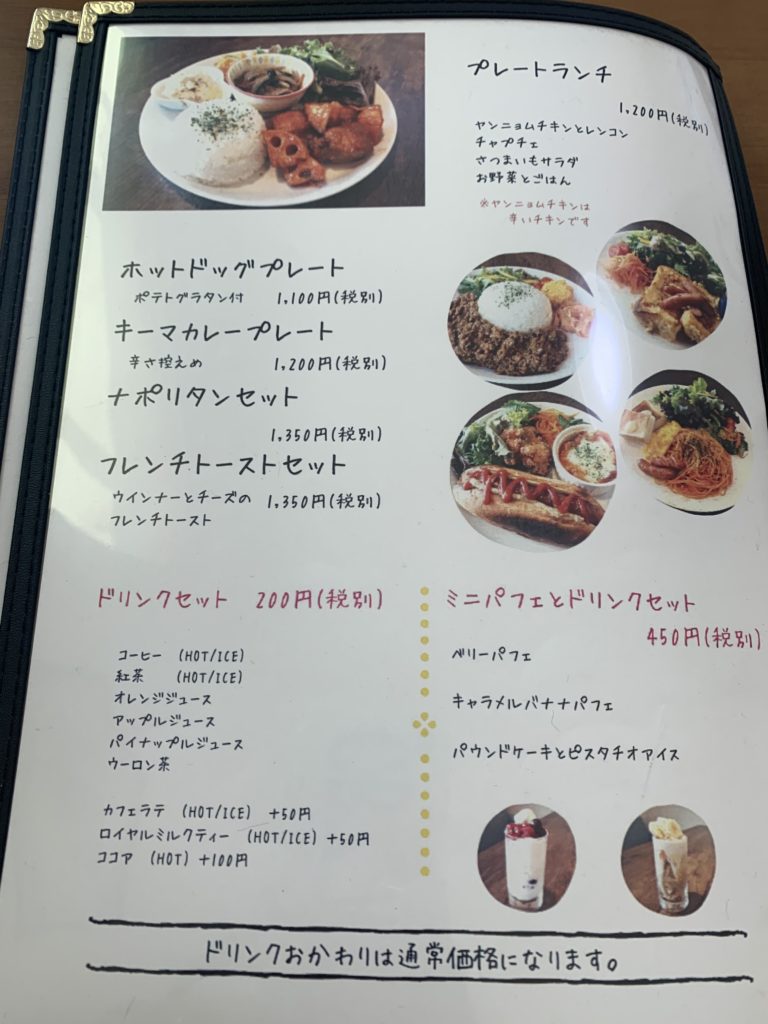 プレートランチ
1,200円(税別)
ヤンニョムチキンとレンコン
チャプチェ
さつまいもサラダ
お野菜とごはん
※ヤンニョムチキンは
辛いチキンです
ホットドッグプレート
ポテトグラタン付 1,100円(税別)
キーマカレープレート
辛さ控えめ 1,200円(税別)
ナポリタンセット
1,350円(税別)
フレンチトーストセット
ウインナーとチーズの 1,350円(税別)
フレンチトースト
ドリンクセット 200円(税別)
コーヒー (HOT/ICE)
紅茶 (HOT/ICE)
オレンジジュース
アップルジュース
パイナップルジュース
ウーロン茶
カフェラテ (HOT/ICE) +50円
ロイヤルミルクティー (HOT/ICE) +50円
ココア (HOT) +100円
ミニパフェとドリンクセット
450円(税別)
ベリーパフェ
キャラメルバナナパフェ
パウンドケーキとピスタチオアイス
ドリンクおかわりは通常価格になります。